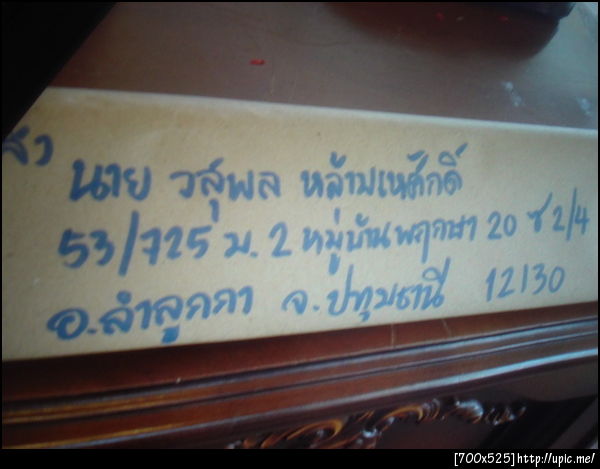 นาย วสุพล หล้ามเหศักดิ์
53/725 ม.2 หมู่บ้านพฤกษา 20 ซ 2/4
อ.ลำลูกกา จ.ปทุมธานี 12130
[700x525]http://upic.me/